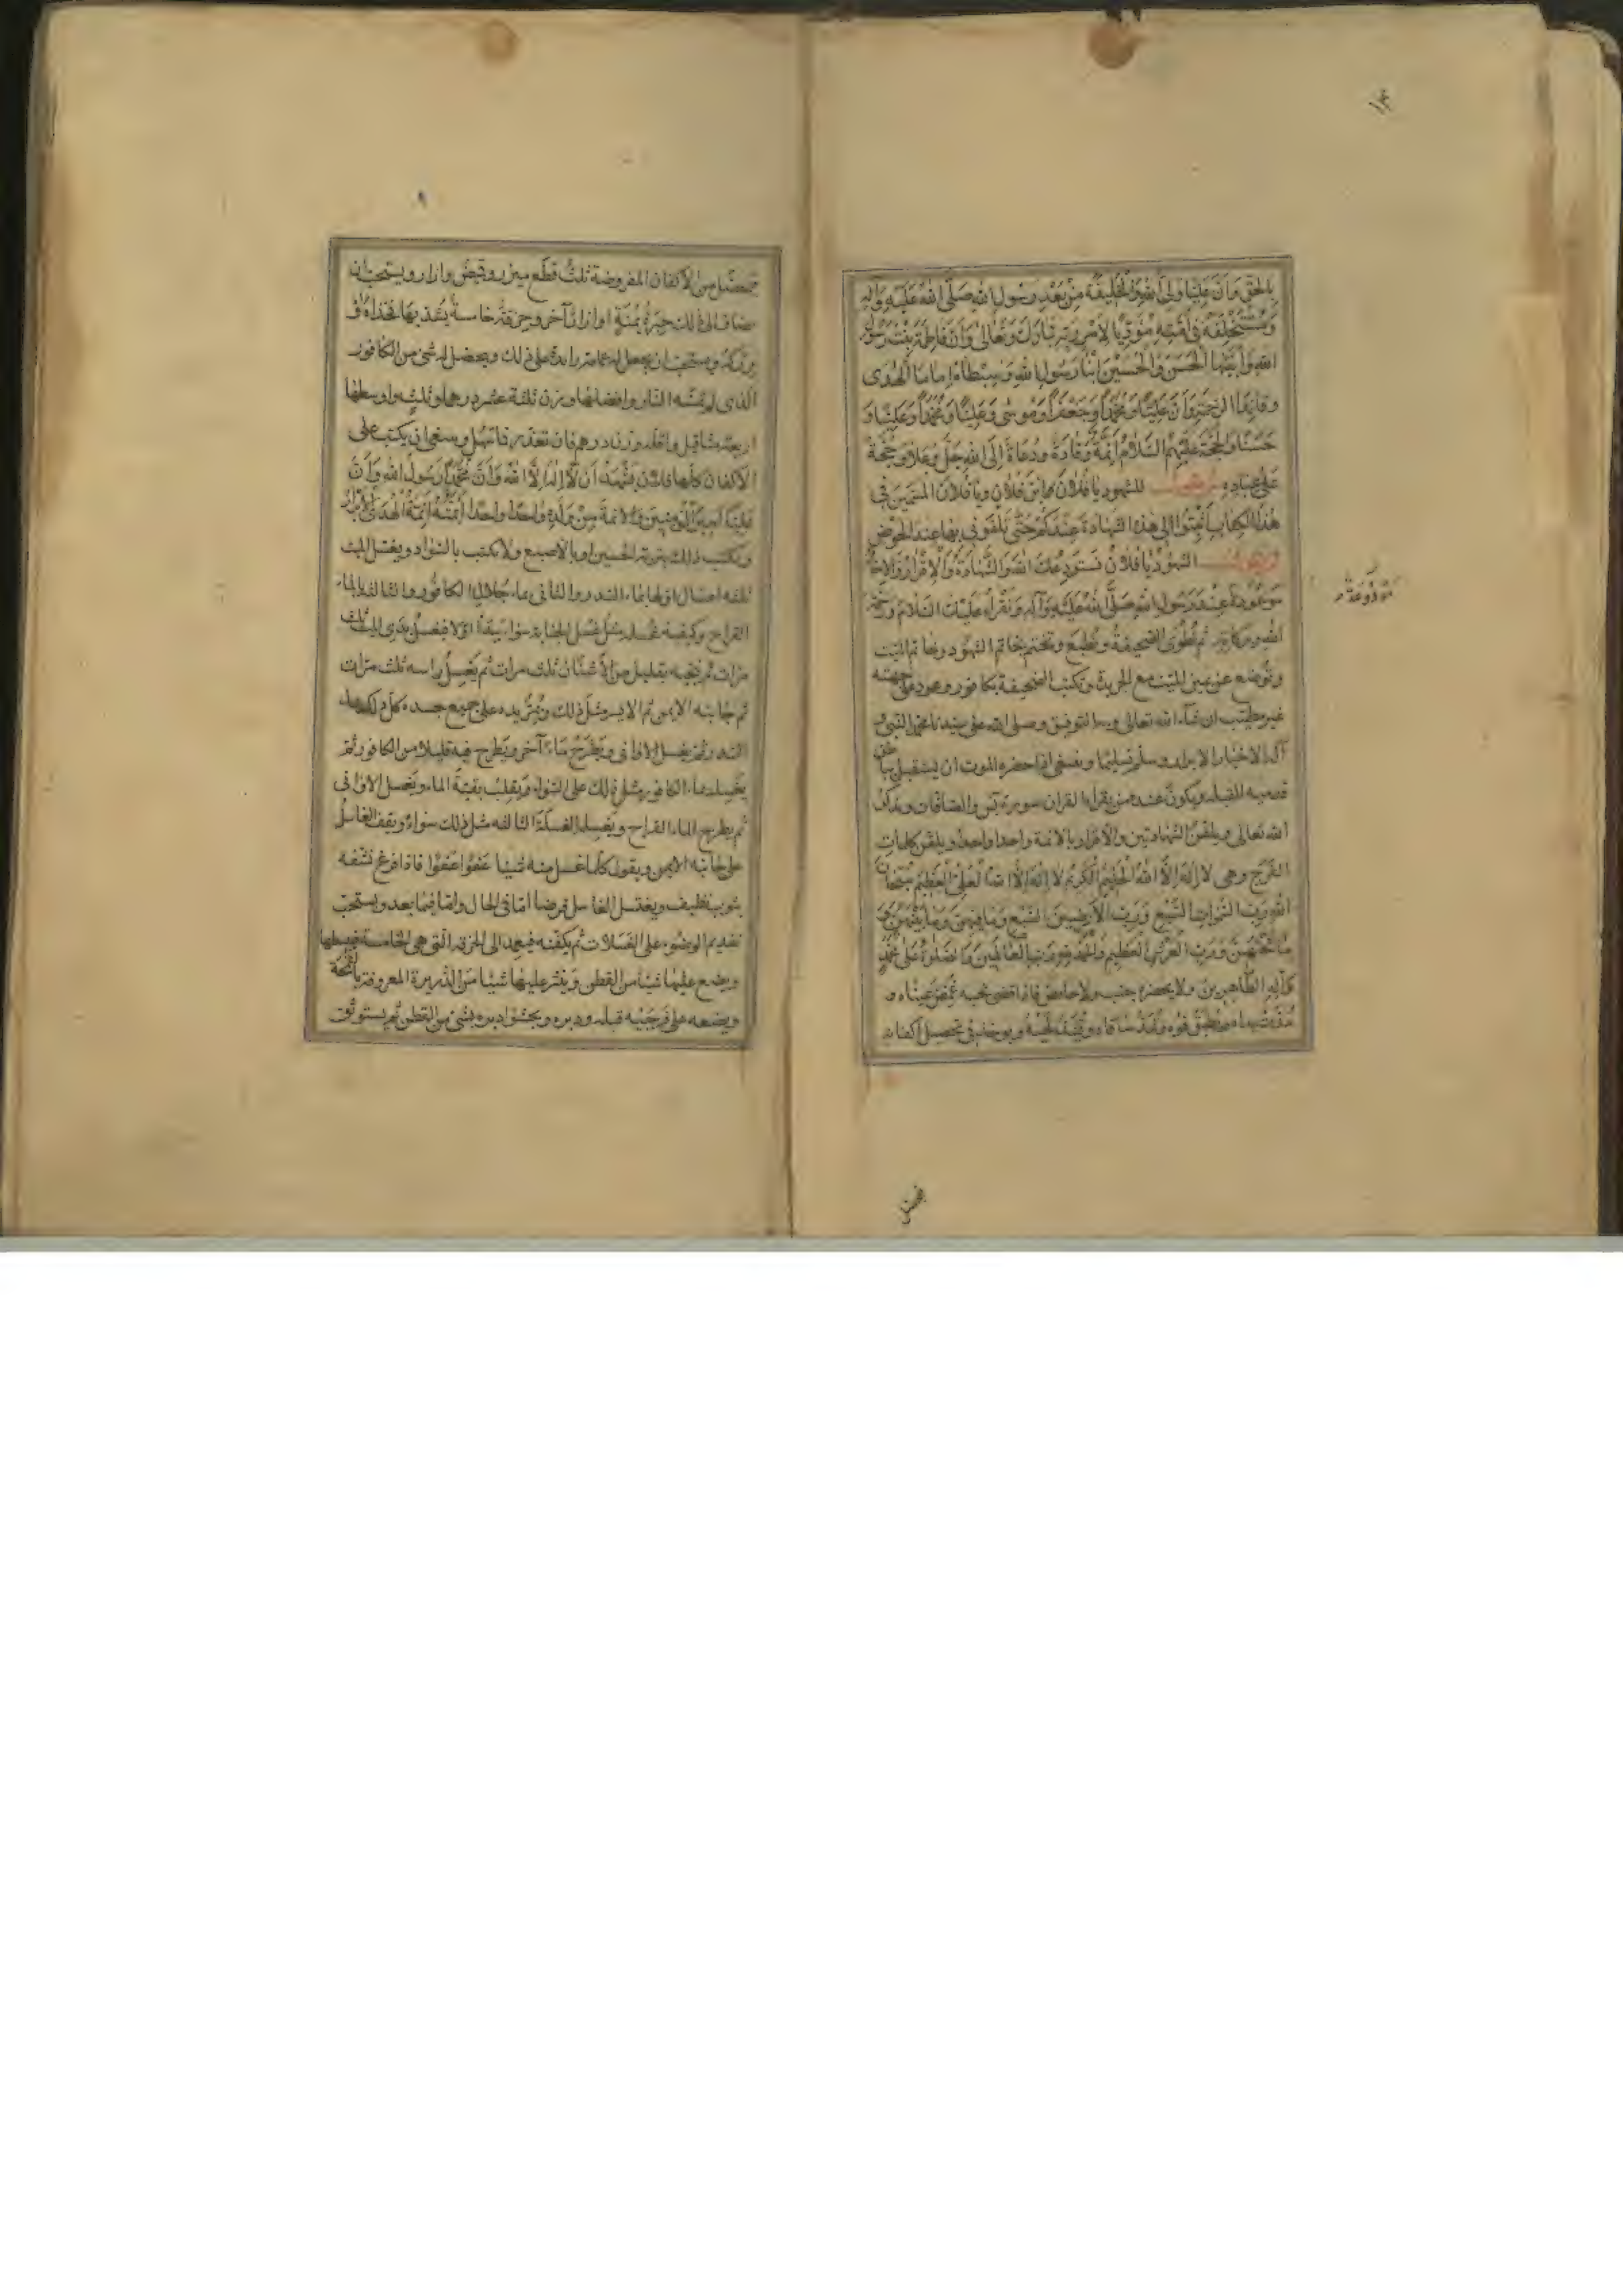 ١٤
بِالْحَقِّ وَأَنَّ عَلِيًّا وَلِيُّ اللهِ وَالْخَلِيفَةُ مِنْ بَعْدِ رَسُولِ اللهِ صَلَّى اللهُ عَلَيْهِ وَآلِهِ
وَمُسْتَخْلَفُهُ فِي أُمَّتِهِ مُؤَدِّيًا لِأَمْرِ رَبِّهِ تَبَارَكَ وَتَعَالَى وَأَنَّ فَاطِمَةَ بِنْتُ رَسُولِ
اللهِ وَابْنَيْهَا الْحَسَنَ وَالْحُسَيْنَ ابْنَا رَسُولِ اللهِ وَسِبْطَاهُ إِمَامَا الْهُدَى
وَقَائِدَا الرَّحْمَةِ وَأَنَّ عَلِيًّا وَمُحَمَّدًا وَجَعْفَرًا وَمُوسَى وَعَلِيًّا وَمُحَمَّدًا وَعَلِيًّا وَ
حَسَنًا وَالْحُجَّةَ عَلَيْهِمُ السَّلَامُ أَئِمَّةٌ وَقَادَةٌ وَدُعَاةٌ إِلَى اللهِ جَلَّ وَعَلَا وَحُجَّةٌ
عَلَى عِبَادِهِ ثم يقول للشهود يَا فُلَانُ يَا بْنَ فُلَانٍ وَيَا فُلَانُ الْمُسَمَّيْنَ فِي
هٰذَا الْكِتَابِ أَثْبِتُوا لِي هٰذِهِ الشَّهَادَةَ عِنْدَكُمْ حَتَّى تَلْقَوْنِي بِهَا عِنْدَ الْحَوْضِ
ثم يقول الشهود يَا فُلَانُ نَسْتَوْدِعُكَ اللهَ وَالشَّهَادَةُ وَالْإِقْرَارُ وَالْإِخَاءُ
مَوْعُودَةٌ عِنْدَ رَسُولِ اللهِ صَلَّى اللهُ عَلَيْهِ وَآلِهِ وَنَقْرَأُ عَلَيْكَ السَّلَامَ وَرَحْمَةَ
مَوْدُوعَةٌ
اللهِ وَبَرَكَاتِهِ ثم تُطْوَى الصحيفةُ وتُطبع وتختم بخاتم الشهود وخاتم الميت
وتوضع عن يمين الميت مع الجريدة وتكتب الصحيفة بكافور وعود على جهته
غير مطيب ان شاء الله تعالى وبه التوفيق وصلى الله على سيدنا محمد النبي و
آله الاخيار الابرار وسلم تسليما وينبغي اذا حضره الموت ان يستقبل بباطن
قدميه القبلة ويكون عنده من يقرأ القرآن سورة يس والصافات ويذكر
الله تعالى ويلقن الشهادتين والاقرار بالائمة واحدا واحدا ويلقن كلمات
الفرج وهى لَا إِلٰهَ إِلَّا اللهُ الْحَلِيمُ الْكَرِيمُ لَا إِلٰهَ إِلَّا اللهُ الْعَلِيُّ الْعَظِيمُ سُبْحَانَ
اللهِ رَبِّ السَّمَوَاتِ السَّبْعِ وَرَبِّ الْأَرَضِينَ السَّبْعِ وَمَا فِيهِنَّ وَمَا بَيْنَهُنَّ وَ
مَا تَحْتَهُنَّ وَرَبِّ الْعَرْشِ الْعَظِيمِ وَالْحَمْدُ لِلهِ رَبِّ الْعَالَمِينَ وَالصَّلَوةُ عَلَى مُحَمَّدٍ
وَآلِهِ الطَّاهِرِينَ ولا يحضره جنب ولا حائض فاذا قضى نحبه غُمِّض عيناه و
مُدَّت يداه ويُطبق فوه وتُمدّ ساقاه ويُشدّ لحيه ويؤخذ فى تحصيل اكفانه
٩
فيحصّل من الاكفان المفروضة ثلث قطع ميزر وقميص وازار ويستحب ان
يضاف الى ذلك حِبَرَةٌ يُمْنَةٍ او ازارٌ آخر وخرقة خامسة يشد بها فخذاه و
وركه ويستحب ان يجعل له عمامة زايدة على ذلك ويحصل له شئ من الكافور
الذى لم تمسّه النار وافضلها وزن ثلثة عشر درهما وثلثٍ واوسطها
اربعة مثاقيل واقله وزن درهم فان تعذر فما تسهل وينبغى ان يكتب على
الاكفان كلها فلان يَشْهَدُ أَنْ لَا إِلٰهَ إِلَّا اللهُ وَأَنَّ مُحَمَّدًا رَسُولُ اللهِ وَأَنَّ
عَلِيًّا أَمِيرُ الْمُؤْمِنِينَ وَالْأَئِمَّةَ مِنْ وُلْدِهِ وَاحِدًا وَاحِدًا أَئِمَّتُهُ أَئِمَّةُ الْهُدَى الْأَبْرَارُ
ويكتب ذلك بتربة الحسين او بالاصبع ولا يكتب بالسواد ويغسل الميت
ثلثة اغسال اولها بماء السدر والثانى بماء جُلال الكافور والثالث بالماء
القراح وكيفية غسله مثل غسل الجنابة سواء يبدأ اولا فيغسل يدى الميت ثلث
مرات ثم ينجيه بقليل من الأُشنان ثلث مرات ثم يَغْسِلُ راسه ثلث مرات
ثم جانبه الايمن ثم الايسر مثل ذلك ويُمِرُّ يده على جميع جسده كل ذلك بماء
السدر ثم يغسل الاوانى ويطرح ماءً آخر ويطرح فيه قليلا من الكافور ثم
يغسله بماء الكافور مثل ذلك على السواء ويقلب بقية الماء ويغسل الاوانى
ثم يطرح الماء القراح ويغسله الغسلة الثالثة مثل ذلك سواءً ويقف الغاسل
على جانبه الايمن ويقول كلما غسل منه شيئا عَفْوًا عَفْوًا فاذا فرغ نشّفه
بثوب نظيف ويغتسل الغاسل فرضا امّا فى الحال وامّا فيما بعد ويستحب
تقديم الوضوء على الغسلات ثم يكفّنه فيعمد الى الخرقة التى هى الخامسة فيبسطها
ويضع عليها شيئا من القطن وينثر عليها شيئا من الذريرة المعروفة بالقُمَّحَة
ويضعه على فرجَيْه قبله ودبره ويحشو دبره بشئ من القطن ثم يستوثق